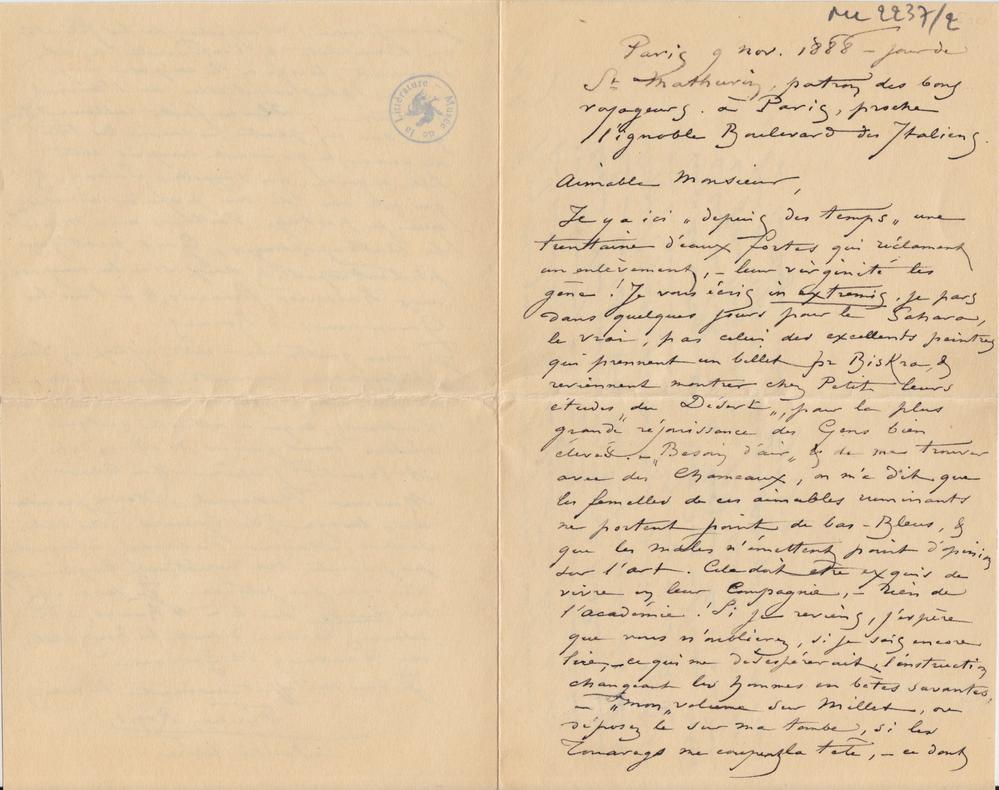 ML 2237/2
Musée de la Littérature
Paris 9 nov. 1888 – jour de
St Mathurin, patron des bons
voyageurs. à Paris, proche
l'ignoble Boulevard des Italiens.
Aimable Monsieur,
Il y a ici „depuis des temps„ une
trentaine d'eaux fortes qui réclament
un enlèvement, – leur virginité les
gêne ! Je vous écris in extremis, je pars
dans quelques jours pour le Sahara,
le vrai, pas celui des excellents peintres
qui prennent un billet pr Biskra, &
reviennent montrer chez Petit leurs
études „du Désert„, pour la plus
grande réjouissance des Gens bien
élevés. – „Besoin d'air„ & de me trouver
avec des Chameaux, on m'a dit que
les femelles de ces aimables ruminants
ne portent point de bas-Bleus, &
que les mâles n'émettent point d'opinion
sur l'art. Cela doit être exquis de
vivre en leur Compagnie, – Rien de
l'académie ! Si je reviens, j'espère
que vous n'oublierez, si je sais encore
lire, – ce qui me désespérerait, l'instruction
changeant les hommes en bêtes savantes,
– „mon„ volume sur Millet, ou
déposez le sur ma tombe, si les
Touaregs me coupent la tête, – ce dont